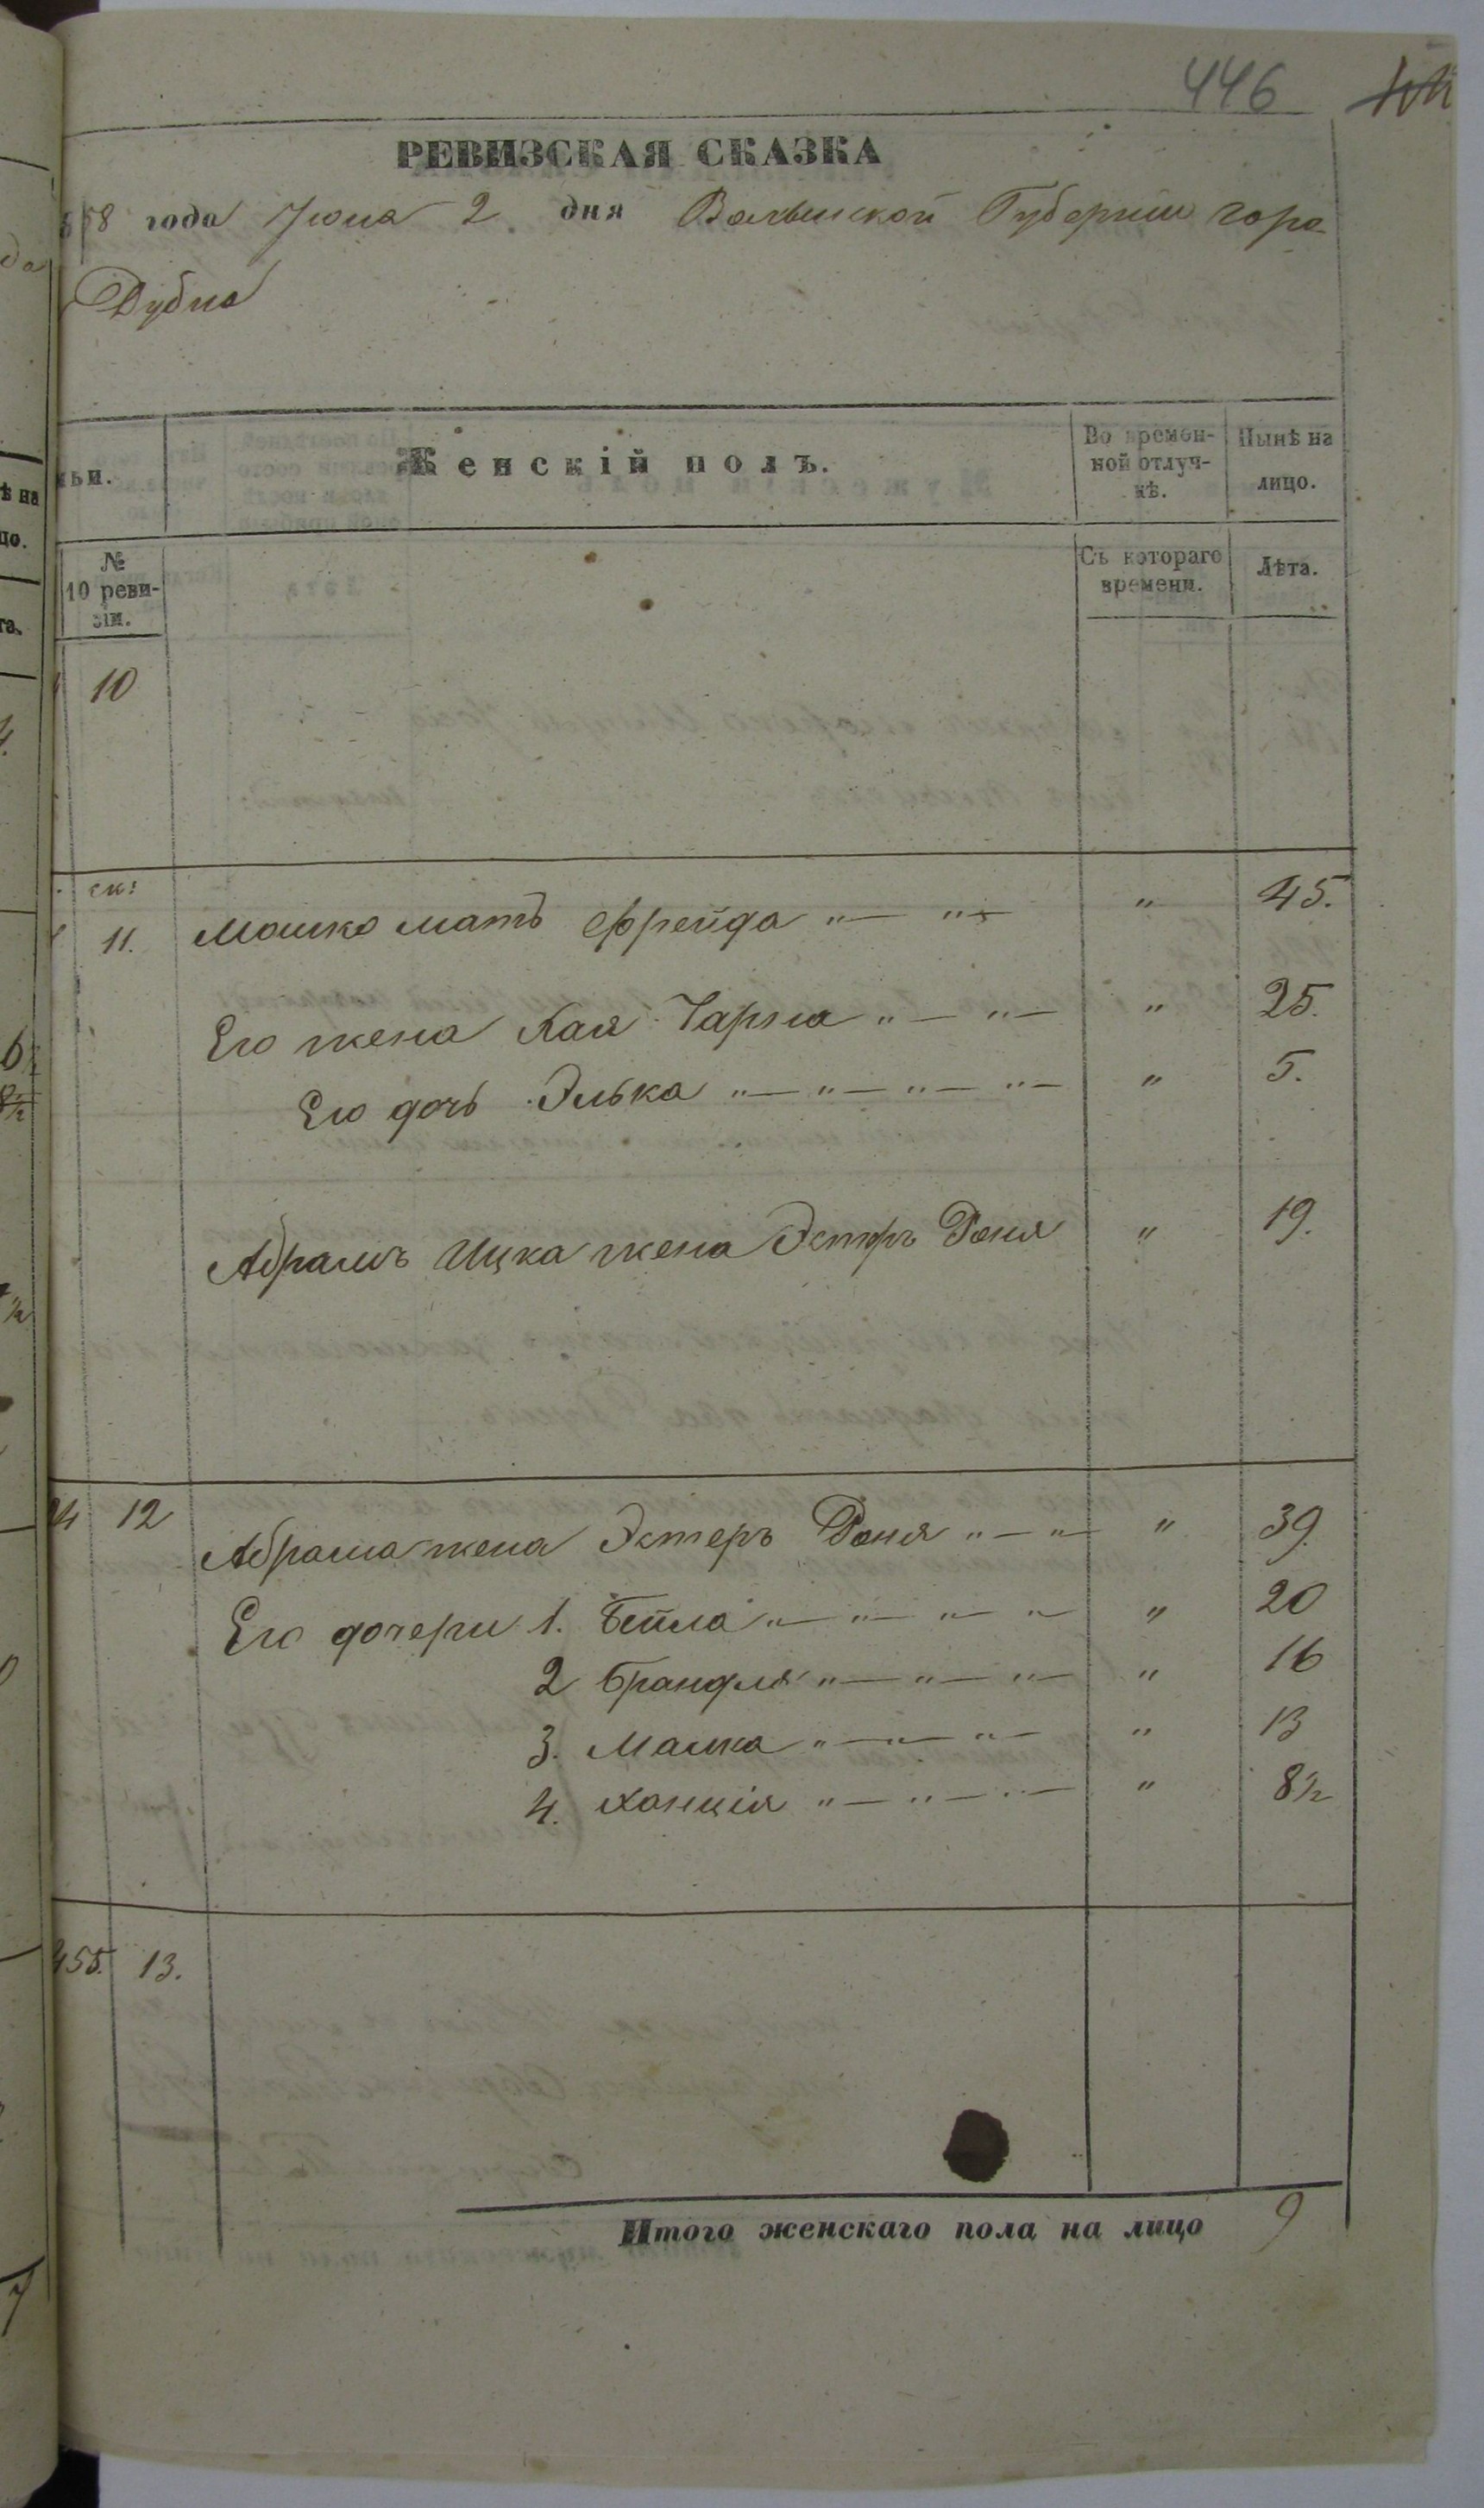 446
РЕВИЗСКАЯ СКАЗКА
58 года Июня 2 дня Волынской Губернии горо-
Дубна
ьи.
Женскій полъ.
Во времен-
ной отлуч-
кѣ.
Нынѣ на
лицо.
№
10 реви-
зіи.
Съ котораго
времени.
Лѣта.
10
ск:
11. Мошко мать Фрейда „ — „ — „ 45.
Его жена Хая Чарна „ — „ — „ 25.
Его дочь Элька „ — „ — „ — „ — „ 5.
Абрамъ Ицка жена Эстръ Доня „ 19.
12 Абрама жена Эстеръ Доня „ — „ — „ 39.
Его дочери 1. Бейла „ — „ — „ — „ „ 20
2 Брандля „ — „ — „ — „ 16
3. Малка „ — „ — „ — „ 13
4. Ханція „ — „ — „ — „ 8½
455. 13.
Итого женскаго пола на лицо 9